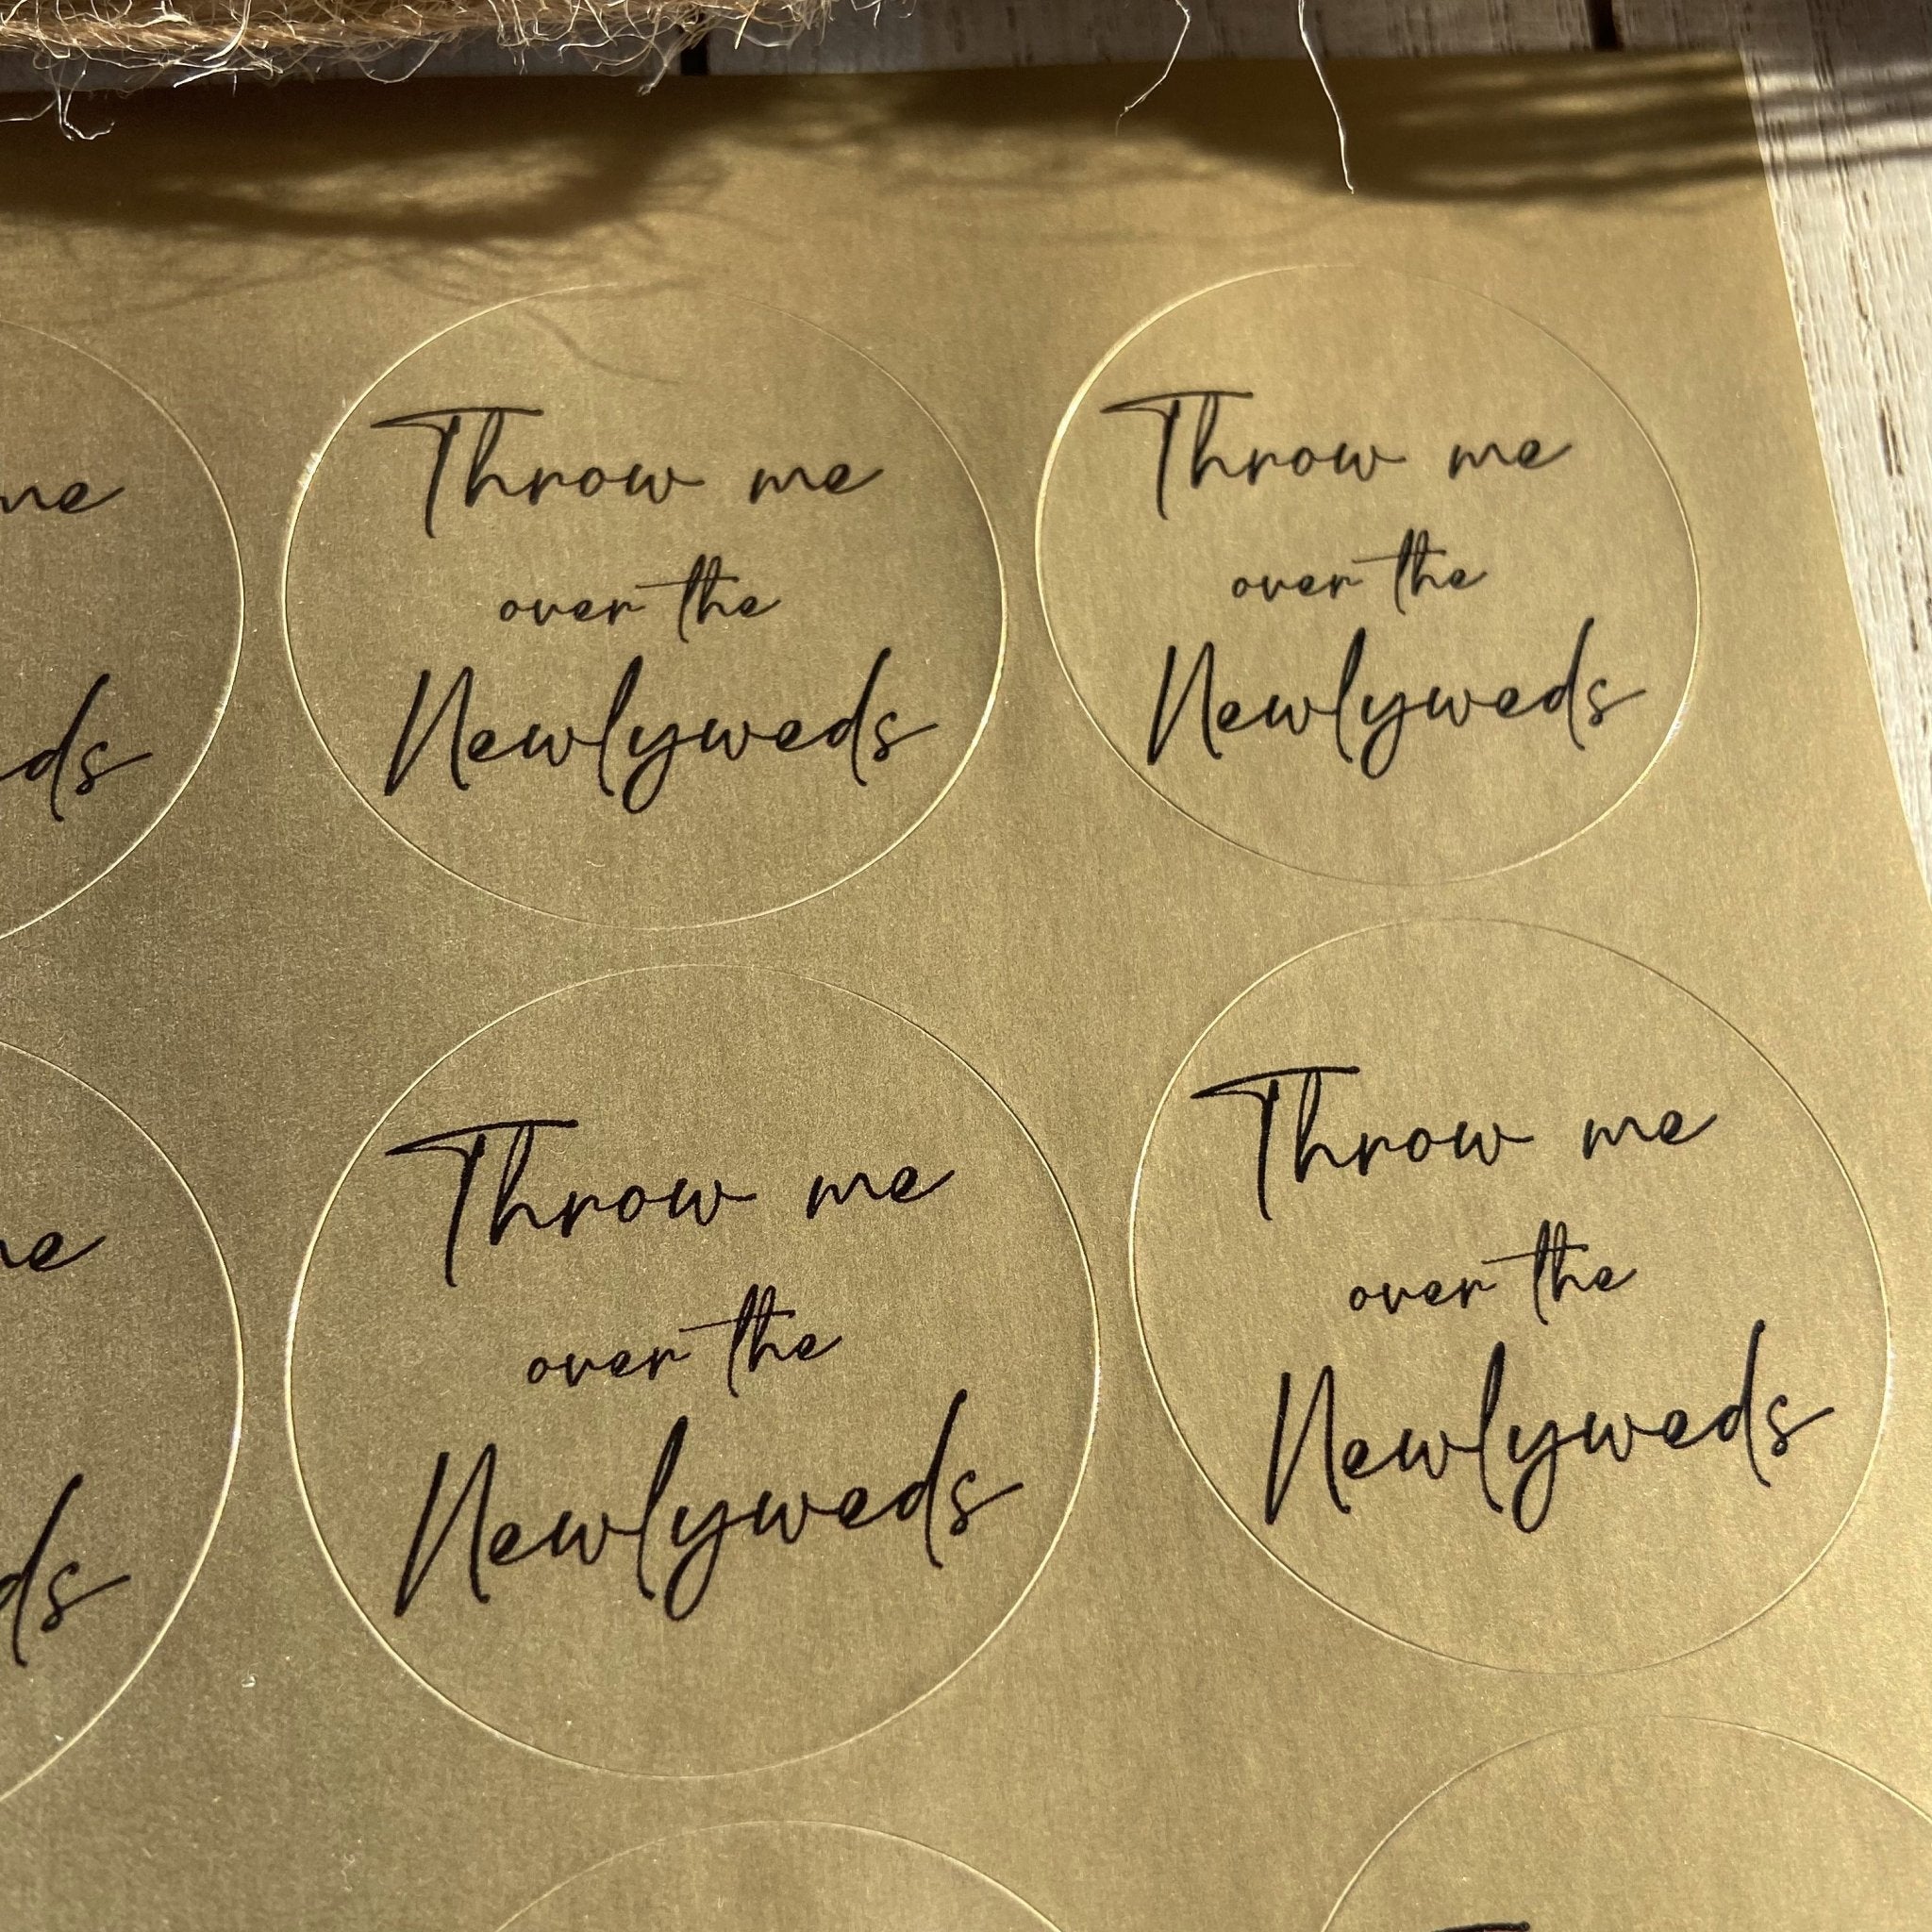 Throw me
over the
Newlyweds
Throw me
over the
Newlyweds
Throw me
over the
Newlyweds
Throw me
over the
Newlyweds